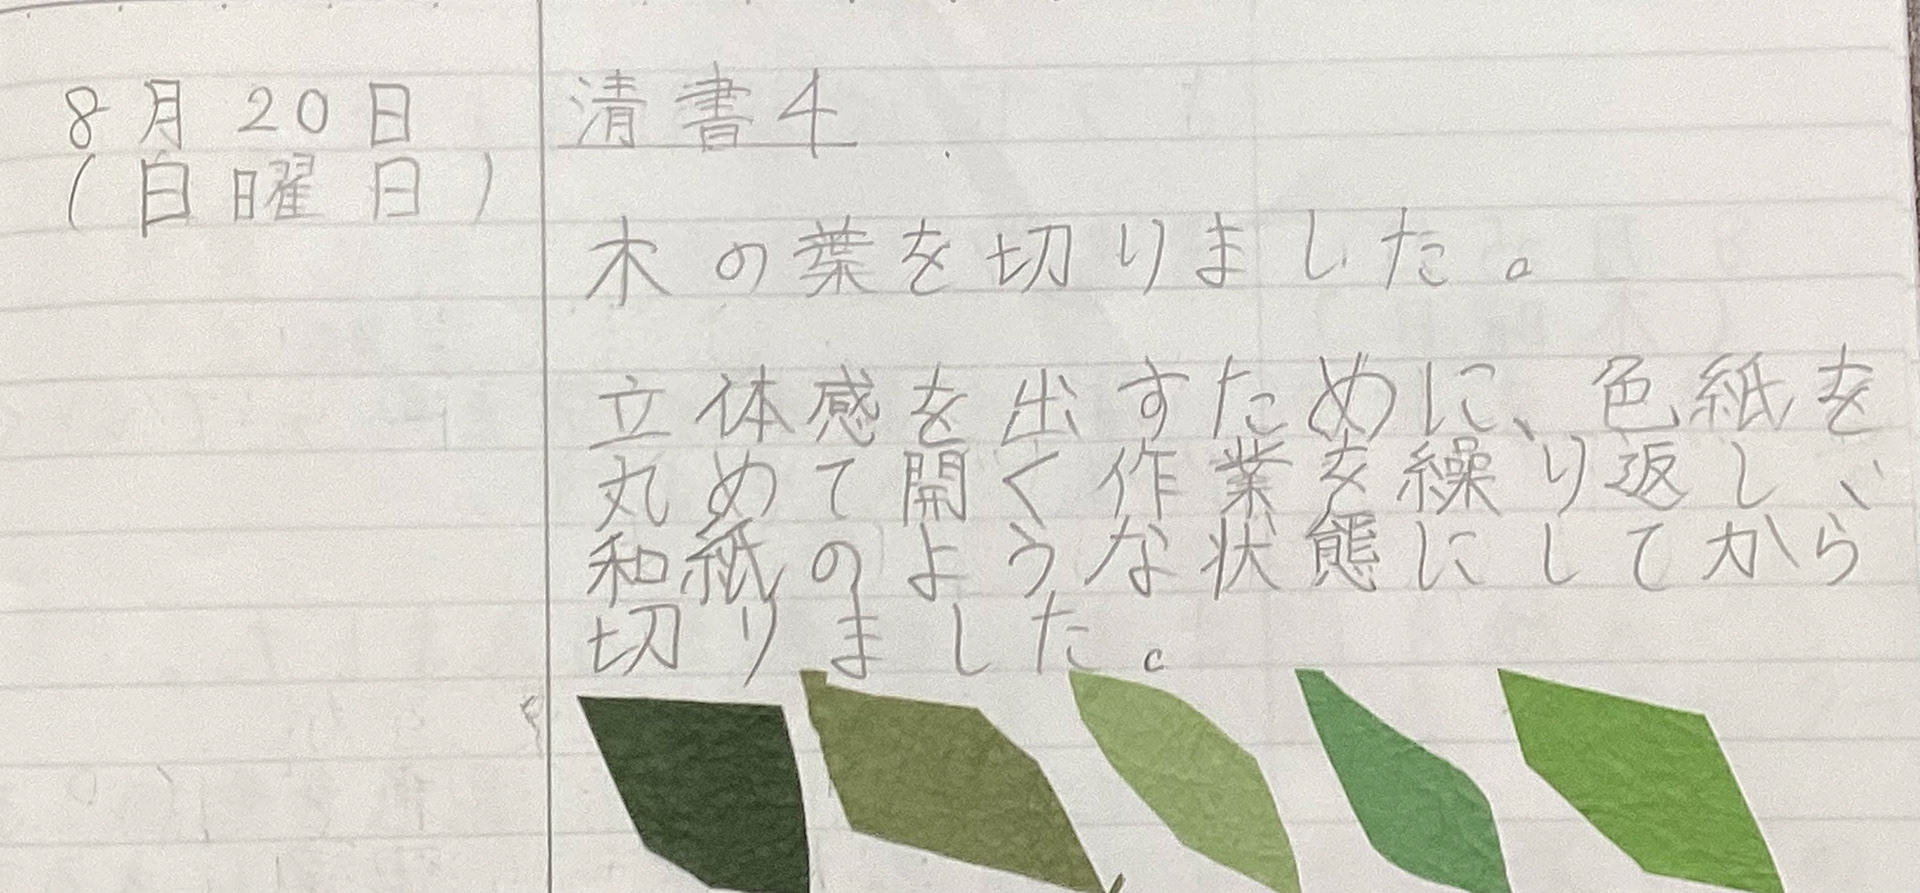 8月20日
(日曜日)
清書4
木の葉を切りました。
立体感を出すために、色紙を
丸めて開く作業を繰り返し、
和紙のような状態にしてから
切りました。